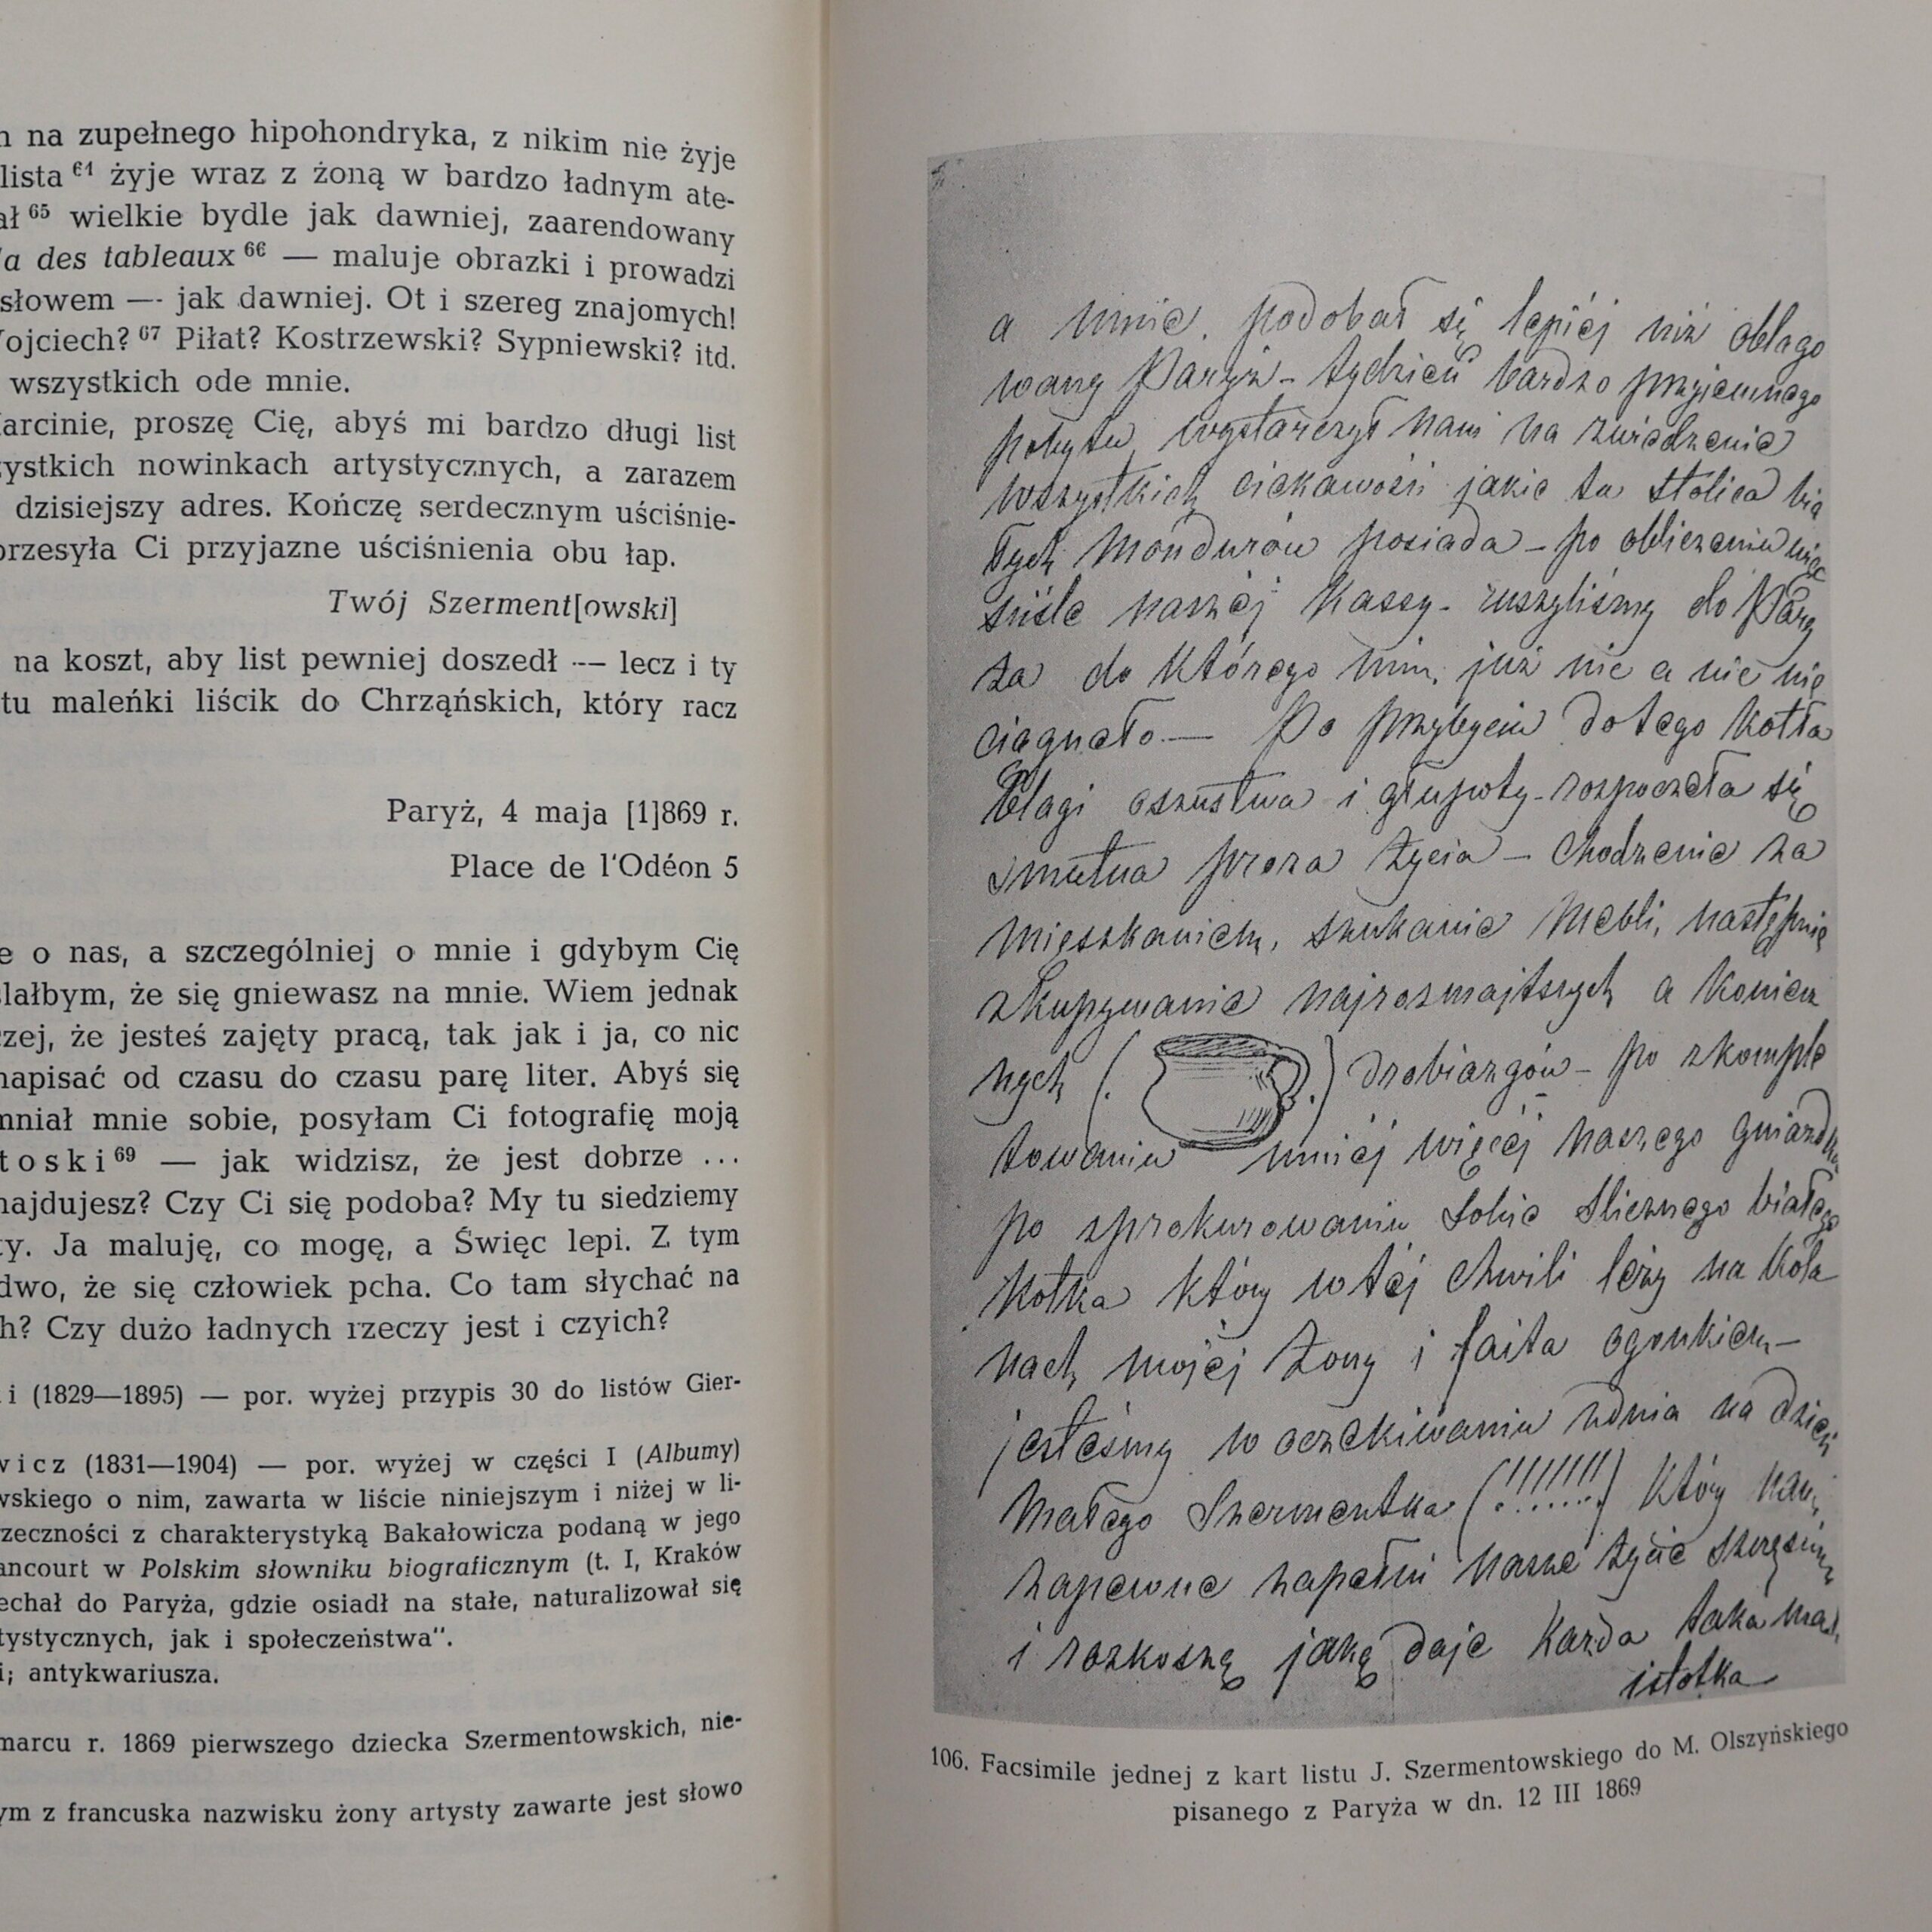 n na zupełnego hipohondryka, z nikim nie żyje
lista 64 żyje wraz z żoną w bardzo ładnym ate-
ał 65 wielkie bydle jak dawniej, zaarendowany
a des tableaux 66 — maluje obrazki i prowadzi
słowem — jak dawniej. Ot i szereg znajomych!
Wojciech? 67 Piłat? Kostrzewski? Sypniewski? itd.
wszystkich ode mnie.
arcinie, proszę Cię, abyś mi bardzo długi list
zystkich nowinkach artystycznych, a zarazem
dzisiejszy adres. Kończę serdecznym uściśnie-
przesyła Ci przyjazne uściśnienia obu łap.
Twój Szerment[owski]
na koszt, aby list pewniej doszedł — lecz i ty
tu maleńki liścik do Chrząńskich, który racz
Paryż, 4 maja [1]869 r.
Place de l'Odéon 5
e o nas, a szczególniej o mnie i gdybym Cię
ślałbym, że się gniewasz na mnie. Wiem jednak
czej, że jesteś zajęty pracą, tak jak i ja, co nic
napisać od czasu do czasu parę liter. Abyś się
mniał mnie sobie, posyłam Ci fotografię moją
toski 69 — jak widzisz, że jest dobrze ...
najdujesz? Czy Ci się podoba? My tu siedziemy
ty. Ja maluję, co mogę, a Święc lepi. Z tym
dwo, że się człowiek pcha. Co tam słychać na
h? Czy dużo ładnych rzeczy jest i czyich?
i (1829—1895) — por. wyżej przypis 30 do listów Gier-
wicz (1831—1904) — por. wyżej w części I (Albumy)
wskiego o nim, zawarta w liście niniejszym i niżej w li-
rzeczności z charakterystyką Bakałowicza podaną w jego
ancourt w Polskim słowniku biograficznym (t. I, Kraków
echał do Paryża, gdzie osiadł na stałe, naturalizował się
tystycznych, jak i społeczeństwa".
i; antykwariusza.
marcu r. 1869 pierwszego dziecka Szermentowskich, nie-
ym z francuska nazwisku żony artysty zawarte jest słowo
a mnie podobał się lepiéj niż oblago
wany Paryż – tydzień bardzo przyjemnego
pobytu wystarczył nam na zwiedzenie
wszystkich ciekawości jakie ta stolica bia
łych mondurów posiada – po obliczeniu więc
ściśle naszéj kassy – ruszyliśmy do Pary
ża do którego mnie już nic a nic nie
ciągnęło — Po przybyciu do tego kotła
blagi oszustwa i głupoty – rozpoczęła się
smutna proza życia – chodzenie za
mieszkaniem, szukanie mebli, następnie
skupywanie najrozmajtszych a koniecz
nych (. .) drobiazgów – po zkomple
towaniu mniéj więcéj naszego gniazdka
po sprokurowaniu sobie ślicznego białego
kotka który w téj chwili leży na kola
nach mojéj żony i fajta ogonkiem –
jesteśmy w oczekiwaniu z dnia na dzień
małego Szermentka (!!!!!!!) który nam
zapewne zapełni nasze życie szczęściem
i rozkoszą jaką daje każda taka mała
istotka
106. Facsimile jednej z kart listu J. Szermentowskiego do M. Olszyńskiego
pisanego z Paryża w dn. 12 III 1869